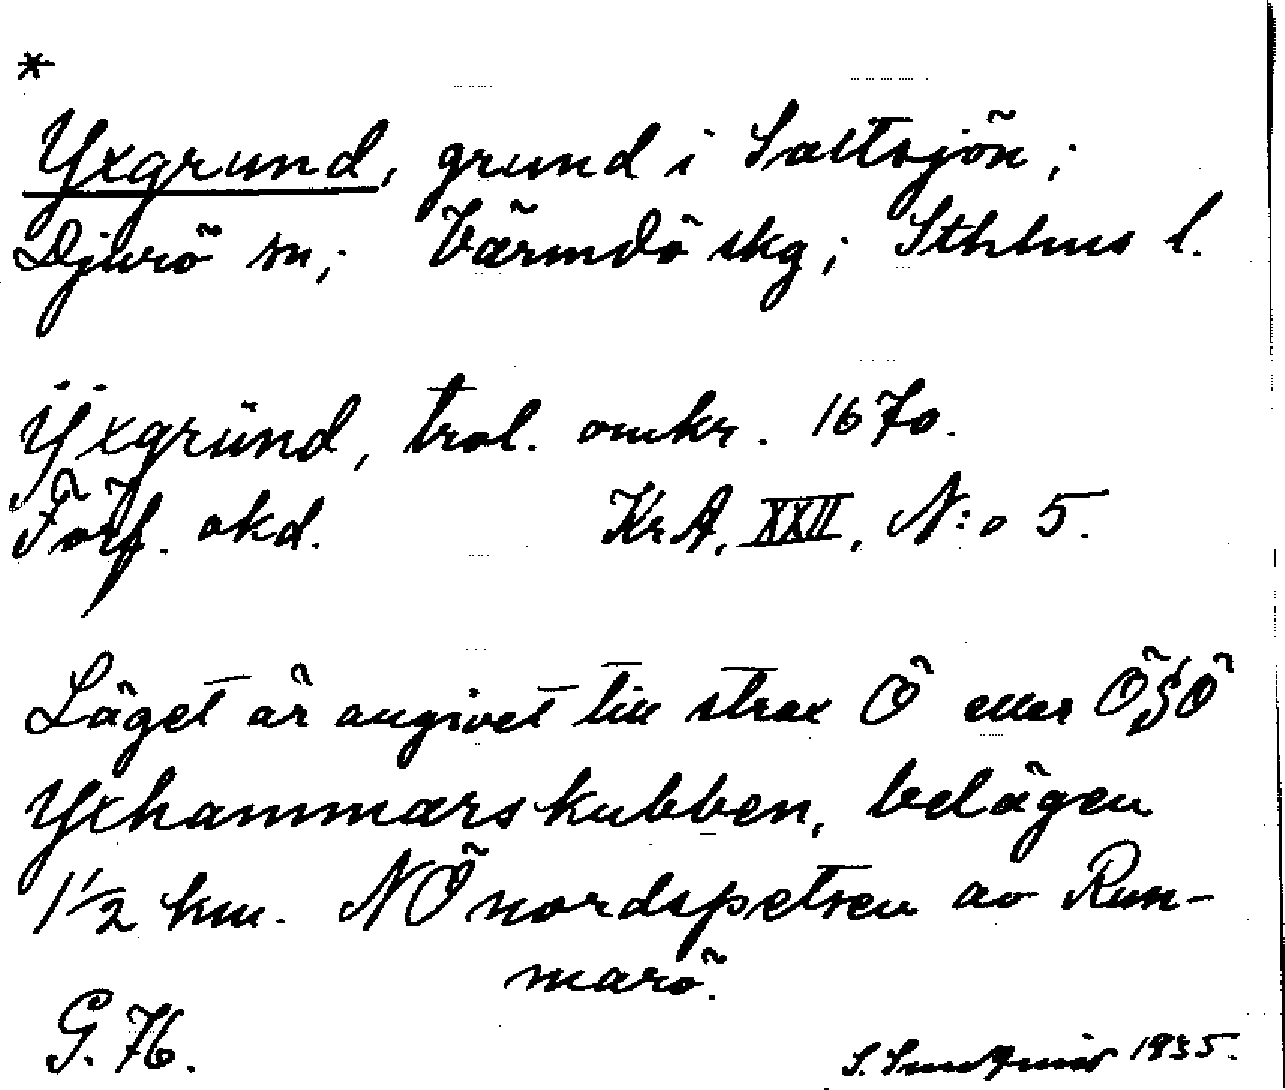 *
Yxgrund, grund i Saltsjön;
Djurö sn; Värmdö skg; Sthlms l.
Ÿxgründ, trol. omkr. 1670.
Förf. okd. Kr A, XXII, N:o 5.
Läget är angivet till strax Ö eller ÖSÖ
Yxhammarskubben, belägen
1 1/2 km. NÖ nordspetsen av Run-
marö.
G. H. S. 1935.